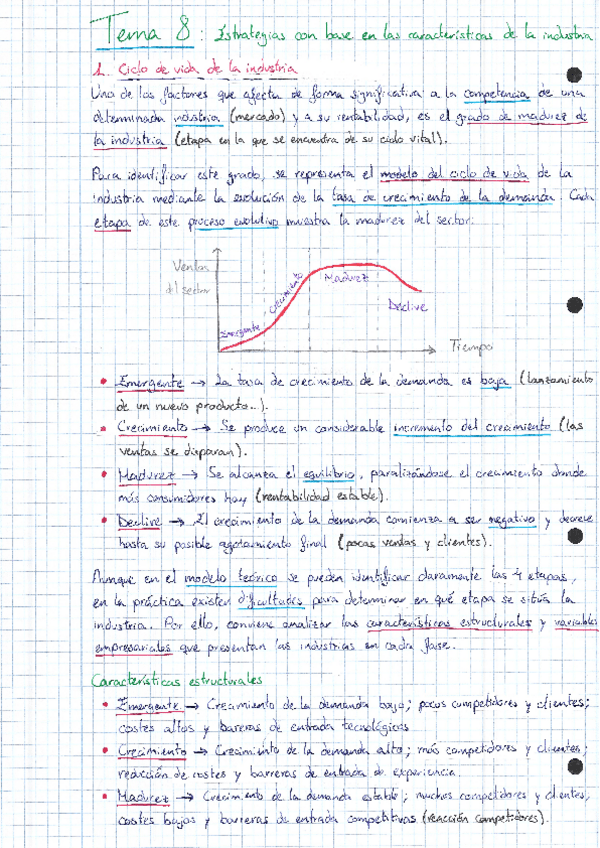 Tema 8: Estrategias con base en las características de la industria
1. Ciclo de vida de la industria
Uno de los factores que afecta de forma significativa a la competencia de una
determinada industria (mercado) y a su rentabilidad, es el grado de madurez de
la industria (etapa en la que se encuentra de su ciclo vital).
Para identificar este grado, se representa el modelo del ciclo de vida de la
industria mediante la evolución de la tasa de crecimiento de la demanda. Cada
etapa de este proceso evolutivo muestra la madurez del sector:
Ventas
del sector
Emergente
Crecimiento
Madurez
Declive
Tiempo
• Emergente → La tasa de crecimiento de la demanda es baja (lanzamiento
de un nuevo producto...).
• Crecimiento → Se produce un considerable incremento del crecimiento (las
ventas se disparan).
• Madurez → Se alcanza el equilibrio, paralizándose el crecimiento donde
más consumidores hay (rentabilidad estable).
• Declive → El crecimiento de la demanda comienza a ser negativo y decrece
hasta su posible agotamiento final (pocas ventas y clientes).
Aunque en el modelo teórico se pueden identificar claramente las 4 etapas,
en la práctica existen dificultades para determinar en qué etapa se sitúa la
industria. Por ello, conviene analizar las características estructurales y variables
empresariales que presentan las industrias en cada fase.
Características estructurales
• Emergente → Crecimiento de la demanda bajo; pocos competidores y clientes;
costes altos y barreras de entrada tecnológicas.
• Crecimiento → Crecimiento de la demanda alto; más competidores y clientes;
reducción de costes y barreras de entrada de experiencia.
• Madurez → Crecimiento de la demanda estable; muchos competidores y clientes;
costes bajos y barreras de entrada competitivas (reacción competidores).